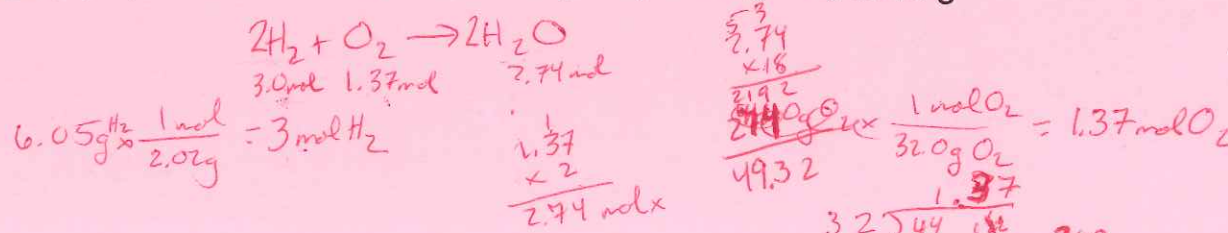 2H₂ + O₂ → 2H₂O
3.0mol 1.37mol 2.74mol
6.05g H₂ x 1mol / 2.02g = 3molH₂
1
1.37
x 2
2.74 molx
5 3
2.74
x18
2192
49.32
1molO₂ / 32.0gO₂ = 1.37molO₂
1.37
32 44